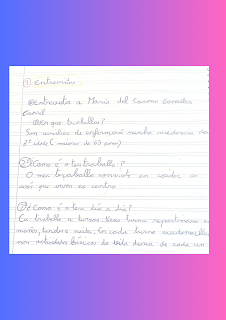 ① Entrevista
Entrevista a María del Carmen
¿En que traballas?
Son auxiliar de enfermaría nunha residencia da
3ª idade (maiores de 65 anos)
② ¿Como é o teu traballo?
O meu traballo consiste en axudar a
que viven no centro
③ ¿Como é o teu día a día?
Eu traballo a turnos. Neses turnos repartimonos en
mañá, tarde e noite. En cada turno axudamoslles
nas actividades básicas da vida diaria de cada un